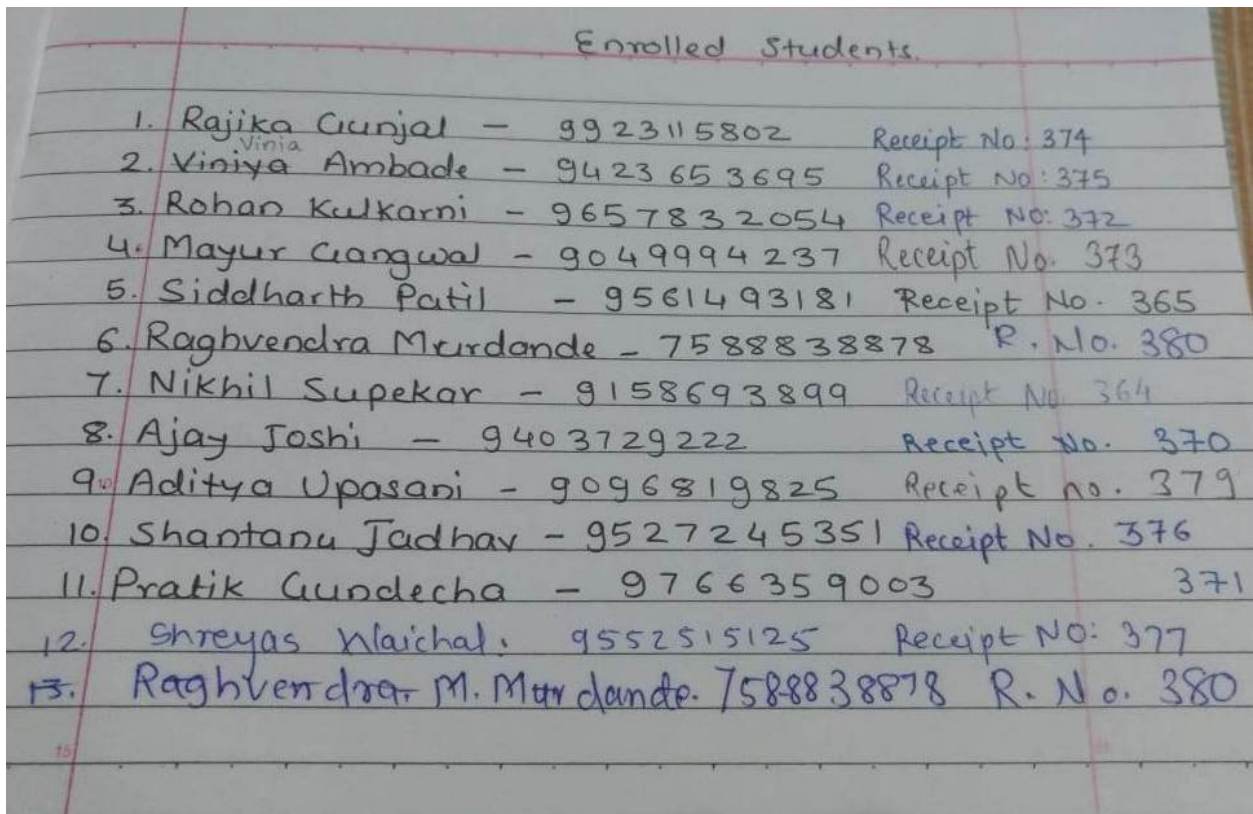 Enrolled Students.
1. Rajika Gunjal - 9923115802 Receipt No: 374
Vinia
2. Viniya Ambade - 9423653695 Receipt No: 375
3. Rohan Kulkarni - 9657832054 Receipt NO: 372
4. Mayur Gangwal - 9049994237 Receipt No. 373
5. Siddharth Patil - 9561493181 Receipt No. 365
6. Raghvendra Murdande - 7588838878 R. No. 380
7. Nikhil Supekar - 9158693899 Receipt No. 364
8. Ajay Joshi - 9403729222 Receipt No. 370
9. Aditya Upasani - 9096819825 Receipt no. 379
10. Shantanu Jadhav - 9527245351 Receipt No. 376
11. Pratik Gundecha - 9766359003 371
12. Shreyas Waichal. 9552515125 Receipt NO: 377
13. Raghvendra M. Murdande. 7588838878 R. No. 380
15